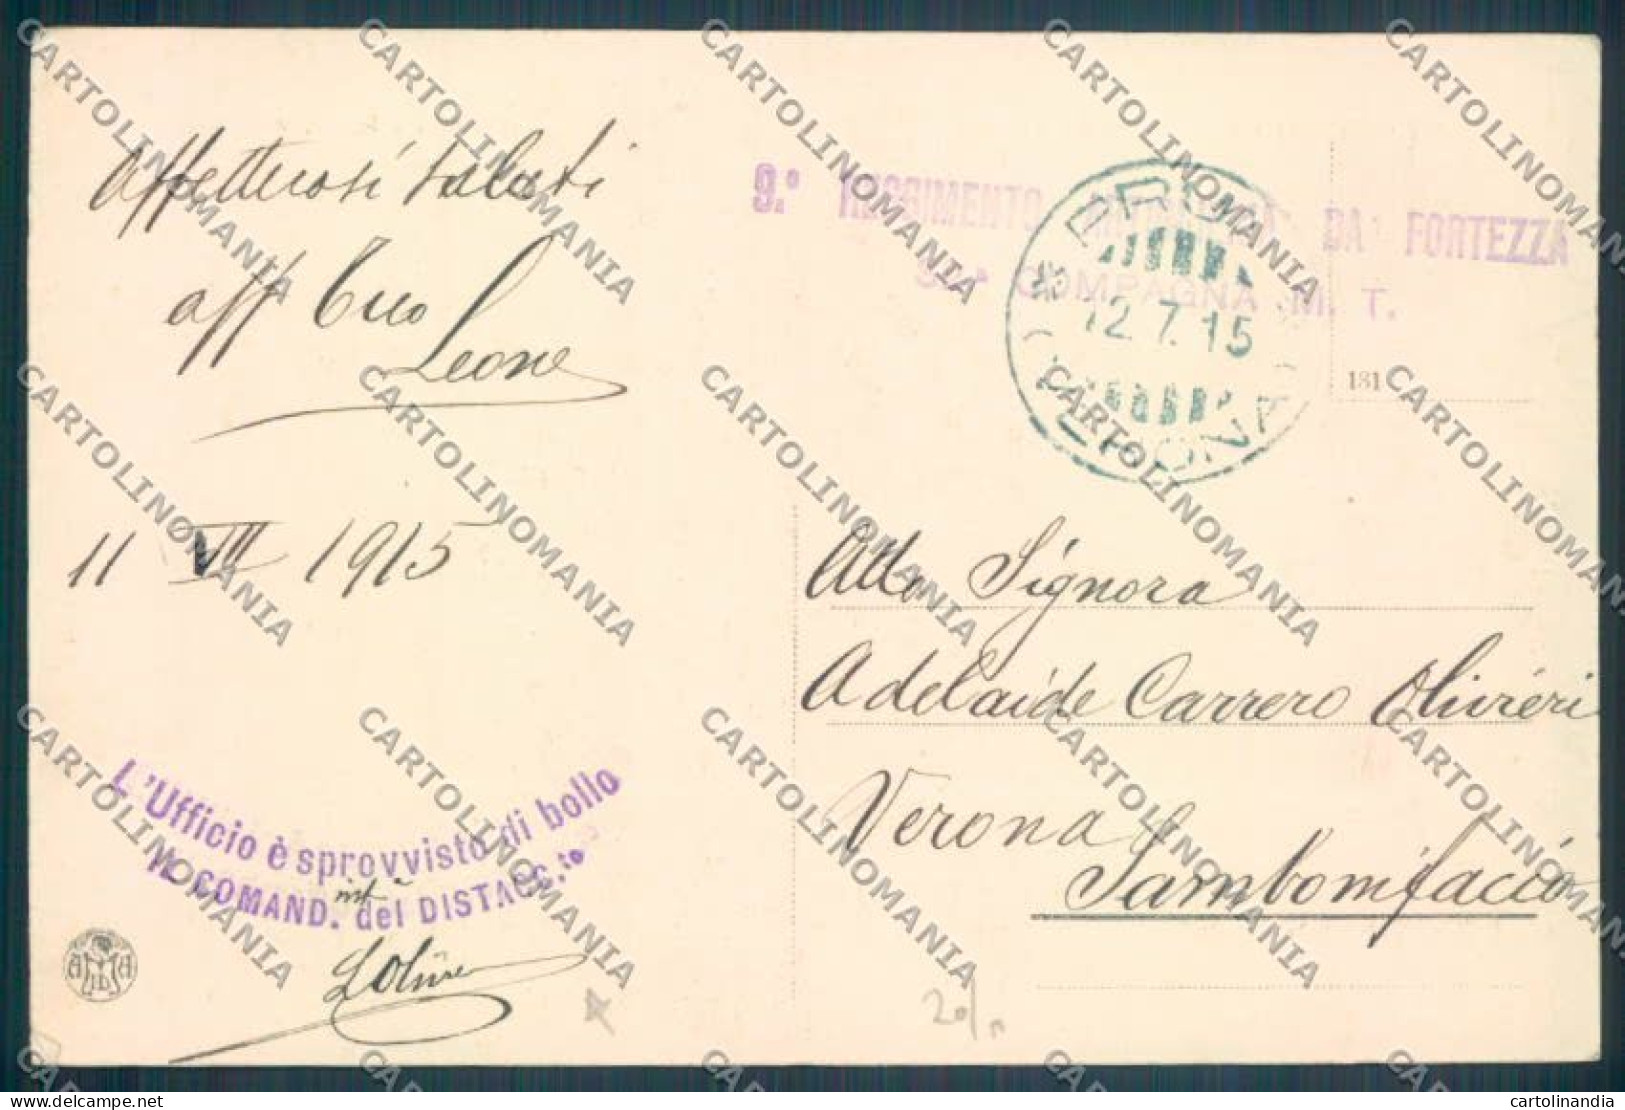 Affettuosi saluti
aff Tuo
Leone
11 VII 1915
L'Ufficio è sprovvisto di bollo
IL COMAND. del DISTACC.to
9.° REGGIMENTO ARTIGLIERIA DA FORTEZZA
COMPAGNIA M. T.
12.7.15
VERONA
181
Alla Signora
Adelaide Carrero Olivieri
Verona
Sambonifacio
20/
CARTOLINOMANIA
www.delcampe.net
cartolinandia